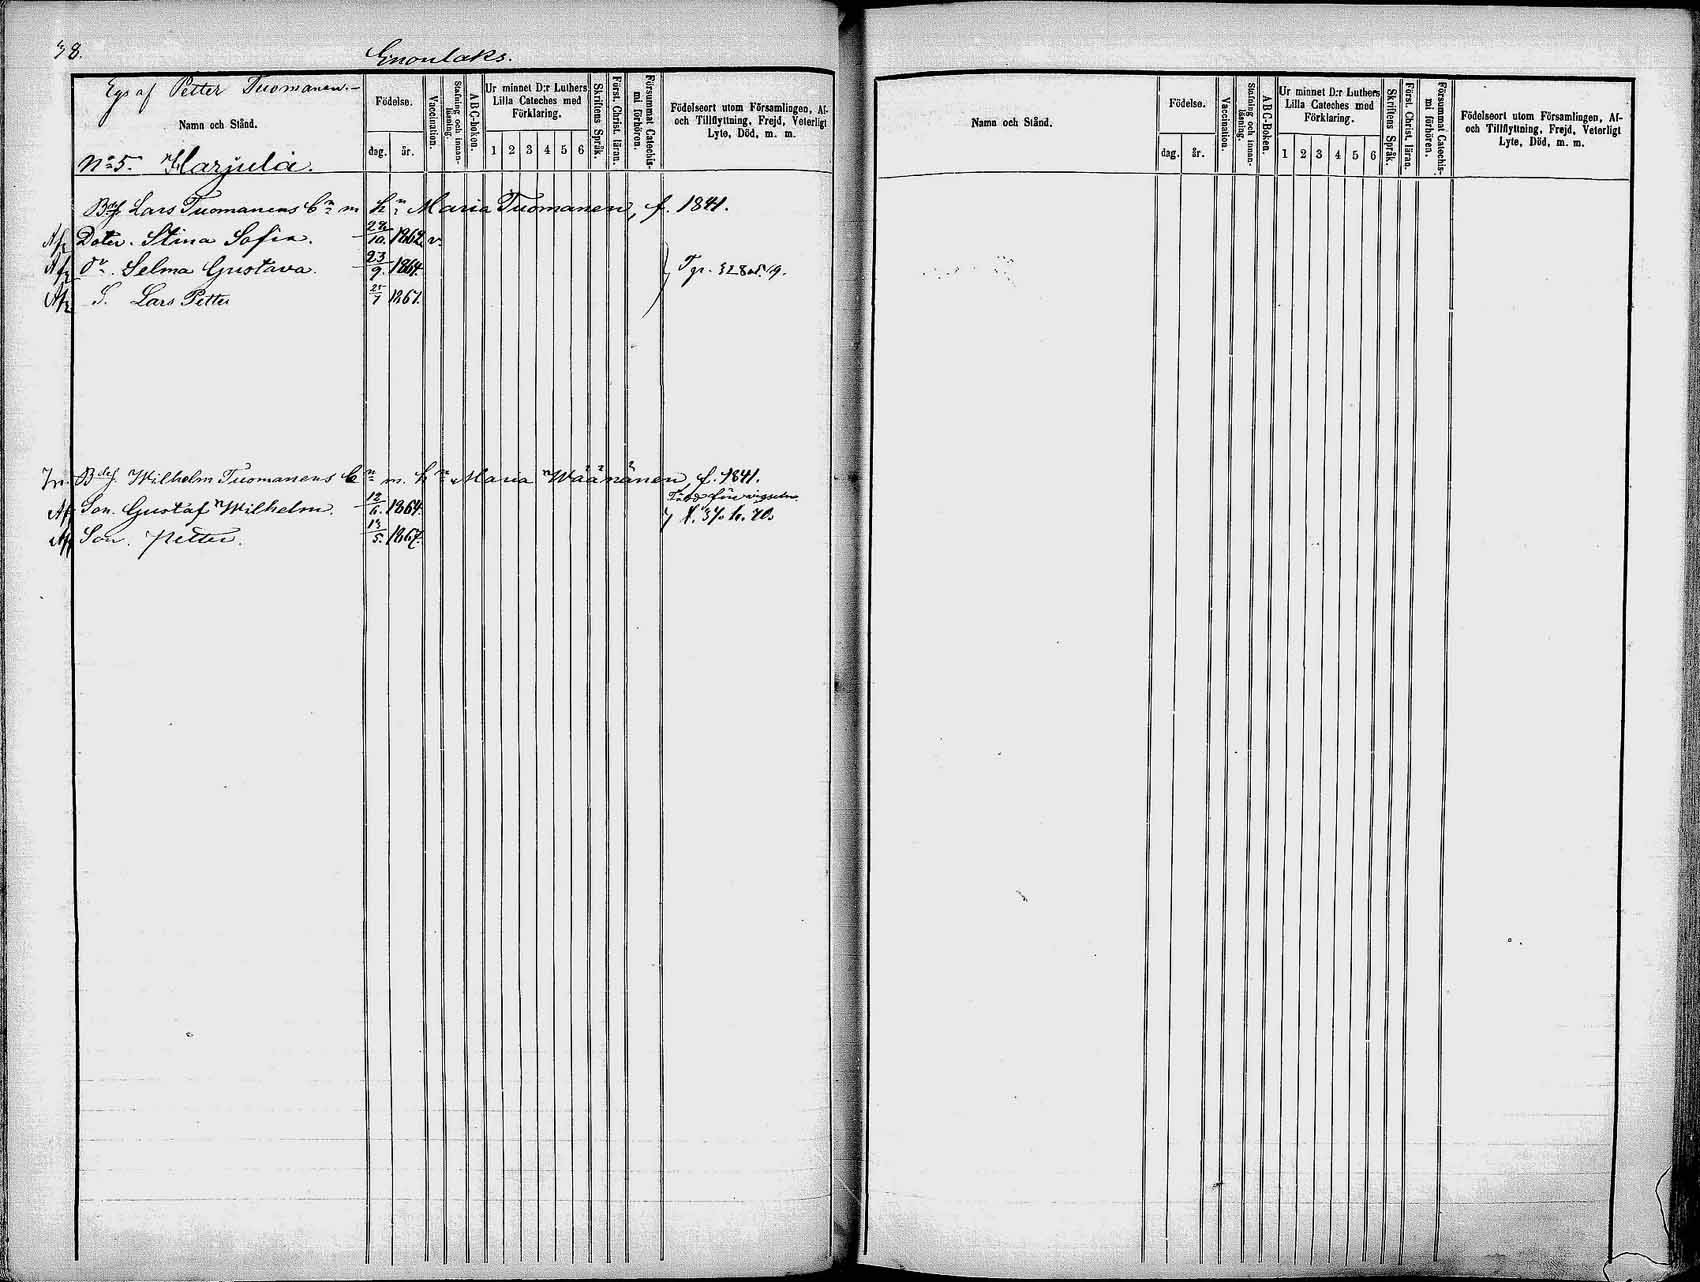 38.
Enonlaks.
Eges af Petter Tuomanen.
Namn och Stånd.
No 5. Harjula.
Födelse.
dag. år.
Vaccination.
Stafning och innanläsning.
ABC-boken.
Ur minnet D:r Luthers Lilla Cateches med Förklaring.
1 2 3 4 5 6
Skriftens Språk.
Först. Christ. läran.
Försummat Catechismi förhören.
Födelseort utom Församlingen, Af- och Tillflyttning, Frejd, Veterligt Lyte, Död, m. m.
Lars Tuomanens Bn m hn: Maria Tuomanen, f. 1841.
Doter. Stina Sofia. 10. 1862. v.
Dr. Selma Gustava. 23/9. 1864.
S. Lars Petter 1867.
Wilhelm Tuomanens m. hn Maria Wäänänen, f. 1841.
Son. Gustaf Wilhelm. 12/6. 1864.
Son. Petter. 13/5. 1867.
Namn och Stånd.
Födelse.
dag. år.
Vaccination.
Stafning och innanläsning.
ABC-Boken.
Ur minnet D:r Luthers Lilla Cateches med Förklaring.
1 2 3 4 5 6
Skriftens Språk.
Först. Christ. läran.
Försummat Catechismi förhören.
Födelseort utom Församlingen, Af- och Tillflyttning, Frejd, Veterligt Lyte, Död, m. m.